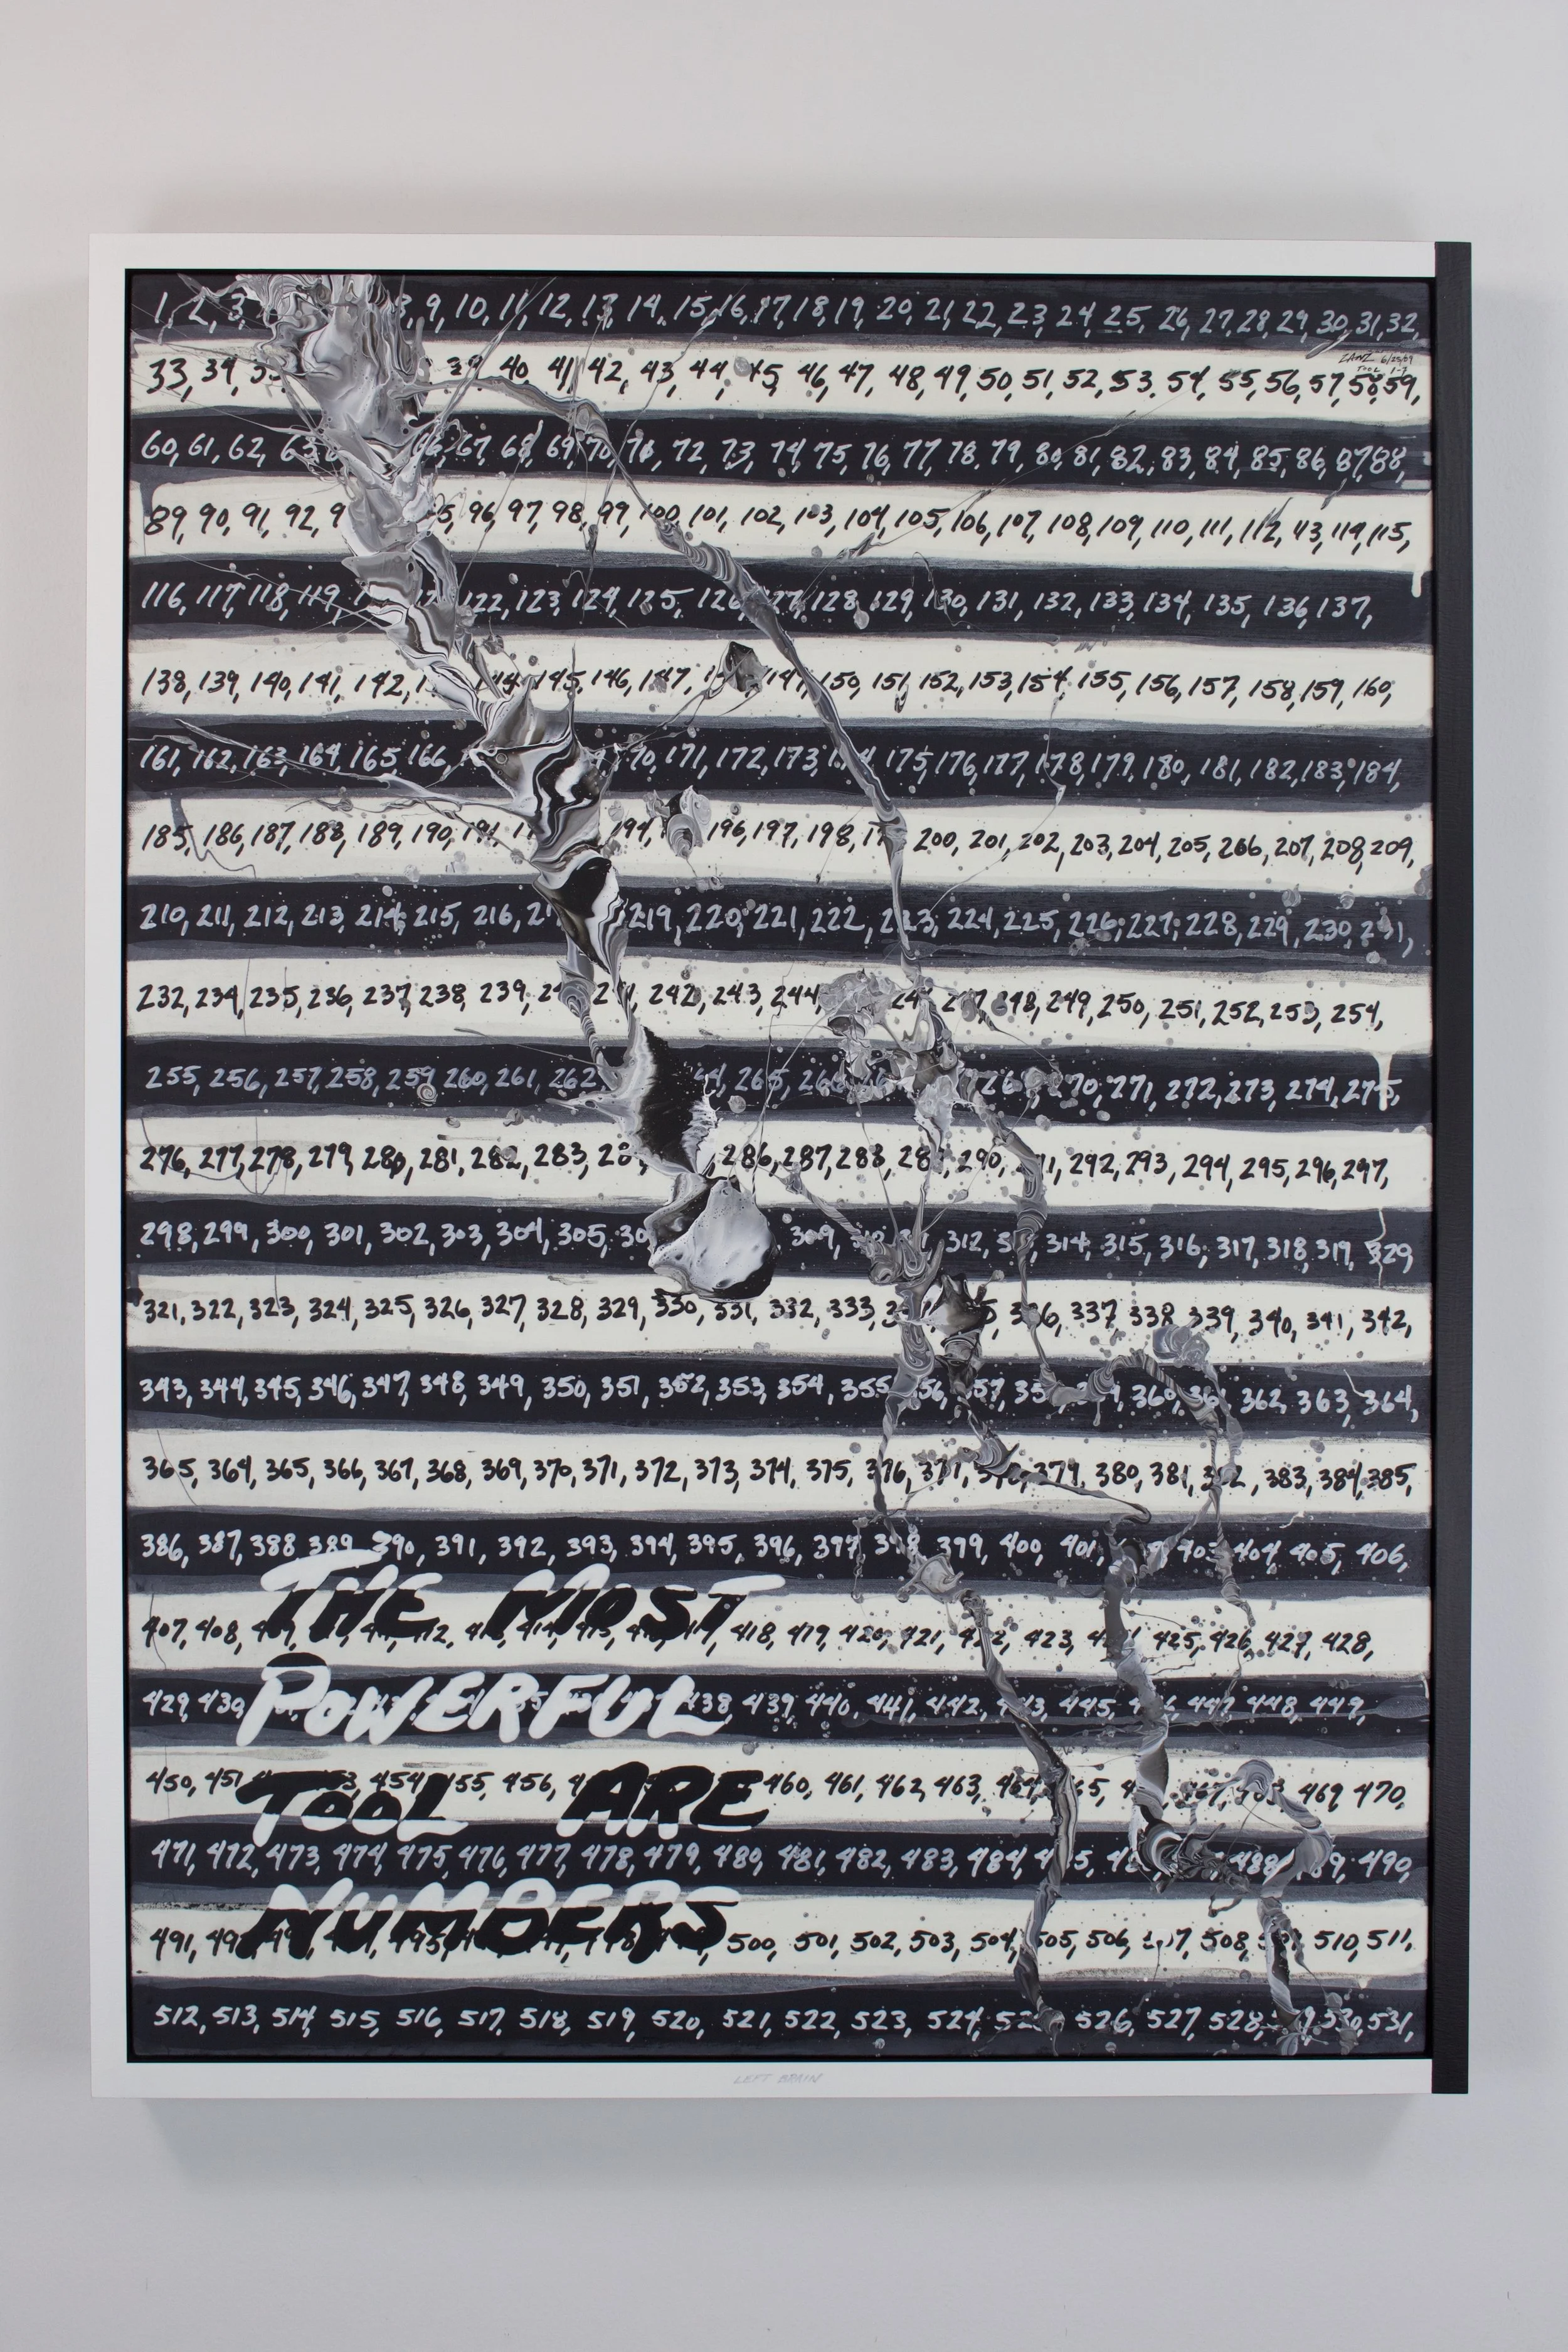 1, 2, 3, 9, 10, 11, 12, 13, 14, 15, 16, 17, 18, 19, 20, 21, 22, 23, 24, 25, 26, 27, 28, 29, 30, 31, 32,
33, 34, 39, 40, 41, 42, 43, 44, 45, 46, 47, 48, 49, 50, 51, 52, 53, 54, 55, 56, 57, 58, 59,
60, 61, 62, 63 67, 68, 69, 70, 71, 72, 73, 74, 75, 76, 77, 78, 79, 80, 81, 82, 83, 84, 85, 86, 87, 88,
89, 90, 91, 92, 96, 97, 98, 99, 100, 101, 102, 103, 104, 105, 106, 107, 108, 109, 110, 111, 112, 113, 114, 115,
116, 117, 118, 119 122, 123, 124, 125, 126, 127, 128, 129, 130, 131, 132, 133, 134, 135, 136, 137,
138, 139, 140, 141, 142, 144, 145, 146, 147, 150, 151, 152, 153, 154, 155, 156, 157, 158, 159, 160,
161, 162, 163, 164, 165, 166 171, 172, 173, 175, 176, 177, 178, 179, 180, 181, 182, 183, 184,
185, 186, 187, 188, 189, 190, 191, 194, 196, 197, 198, 200, 201, 202, 203, 204, 205, 206, 207, 208, 209,
210, 211, 212, 213, 214, 215, 216, 219, 220, 221, 222, 223, 224, 225, 226, 227, 228, 229, 230, 231,
232, 234, 235, 236, 237, 238, 239, 242, 243, 244, 247, 248, 249, 250, 251, 252, 253, 254,
255, 256, 257, 258, 259, 260, 261, 262 265, 271, 272, 273, 274, 275,
276, 277, 278, 279, 280, 281, 282, 283, 286, 287, 288, 289, 290, 292, 293, 294, 295, 296, 297,
298, 299, 300, 301, 302, 303, 304, 305, 309, 312, 314, 315, 316, 317, 318, 319, 329,
321, 322, 323, 324, 325, 326, 327, 328, 329, 330, 331, 332, 333, 336, 337 338, 339, 340, 341, 342,
343, 344, 345, 346, 347, 348, 349, 350, 351, 352, 353, 354, 355 360, 361, 362, 363, 364,
365, 364, 365, 366, 367, 368, 369, 370, 371, 372, 373, 374, 375, 376, 377, 378, 379, 380, 381, 382, 383, 384, 385,
386, 387, 388 389, 390, 391, 392, 393, 394, 395, 396, 397, 398, 399, 400, 401, 403, 404, 405, 406,
THE MOST
407, 408, 418, 419, 420, 421, 422, 423, 425, 426, 427, 428,
POWERFUL
429, 430, 438, 439, 440, 441, 442, 443, 445, 446, 447, 448, 449,
TOOL ARE
450, 451 454, 455, 456, 460, 461, 462, 463, 464, 467, 469, 470,
471, 472, 473, 474, 475, 476, 477, 478, 479, 480, 481, 482, 483, 484, 488, 490,
NUMBERS
491, 500, 501, 502, 503, 504, 505, 506, 507, 508, 510, 511,
512, 513, 514, 515, 516, 517, 518, 519, 520, 521, 522, 523, 524, 526, 527, 528, 530, 531,
LEFT BRAIN